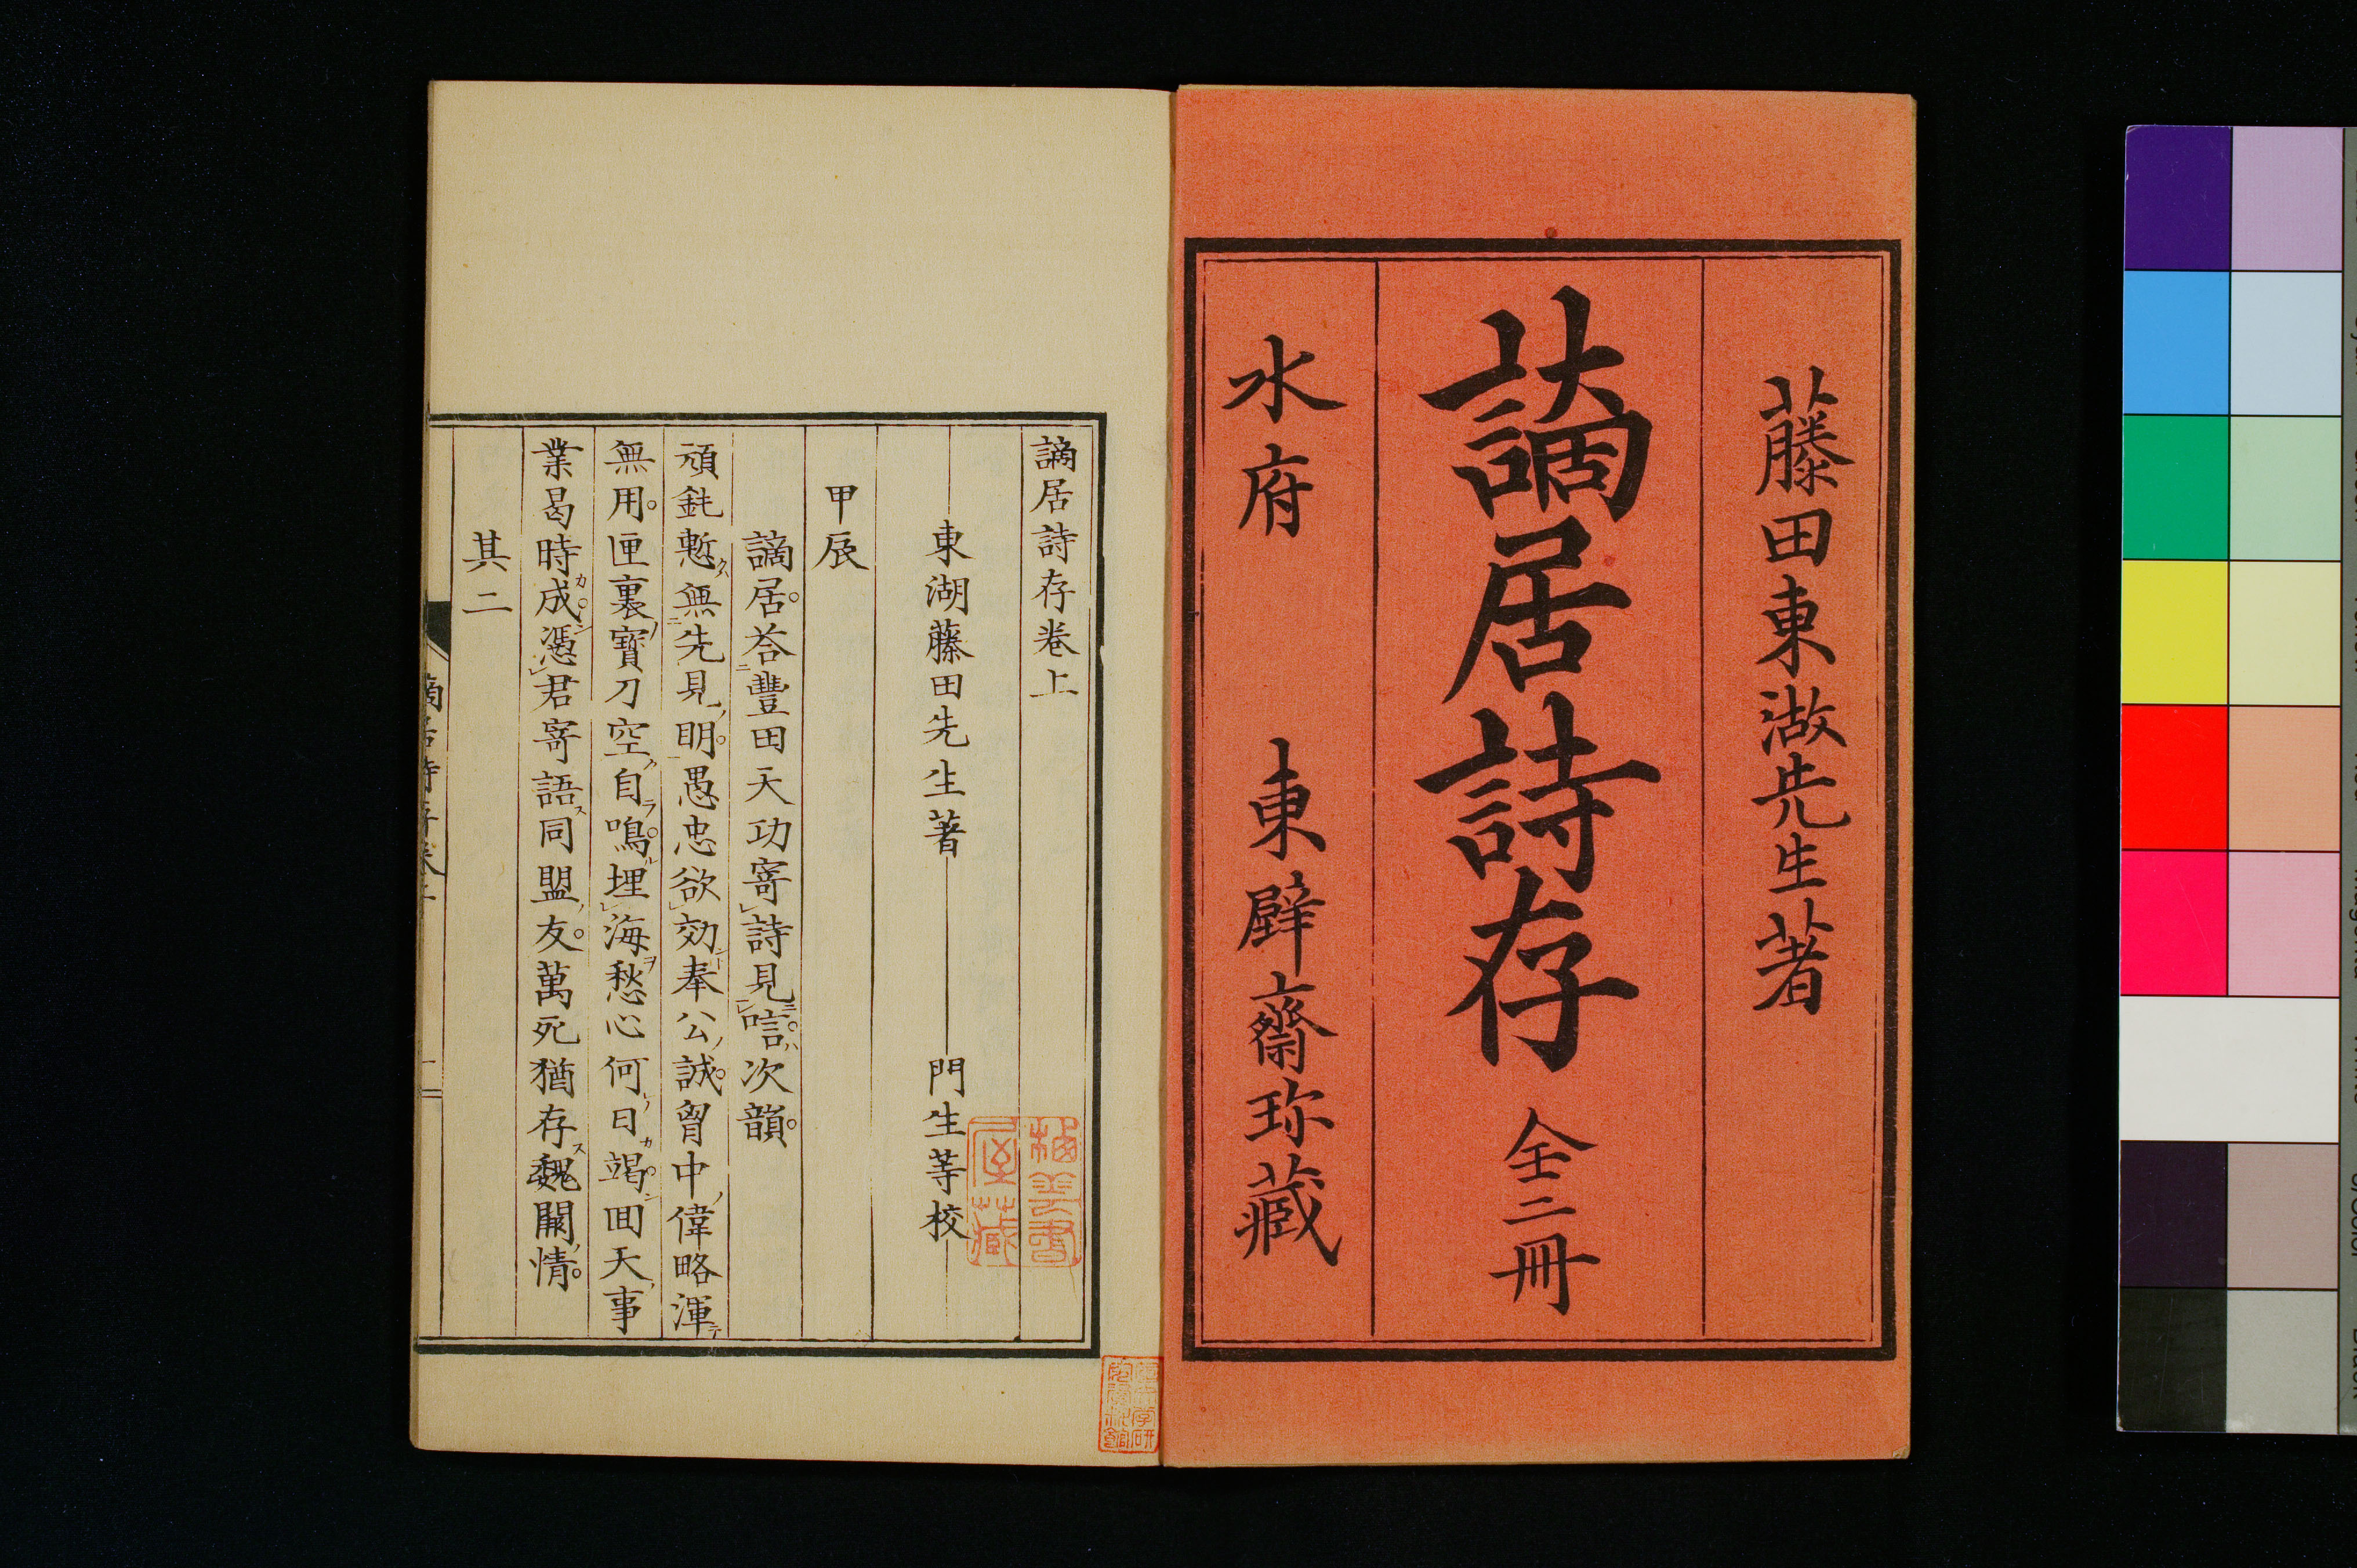 藤田東湖先生著
謫居詩存 全二冊
水府 東壁齋珎藏
謫居詩存卷上
東湖藤田先生著 門生等校
甲辰
謫居荅豐田天功寄詩見唁次韻
頑鈍慙無先見明愚忠欲効奉公誠胷中偉略渾
無用匣裏寶刀空自鳴埋海愁心何日竭囬天事
業曷時成憑君寄語同盟友萬死猶存魏闕情
其二